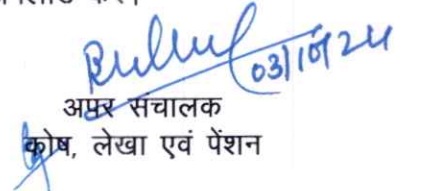 03/10/24
अपर संचालक
कोष, लेखा एवं पेंशन